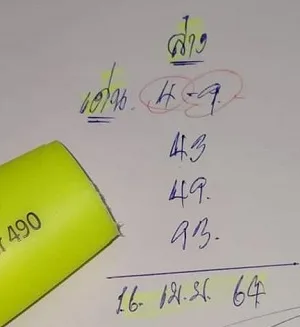 ล่าง
เด่น. 4-9.
43
49.
93.
16. เม.ย. 64
490